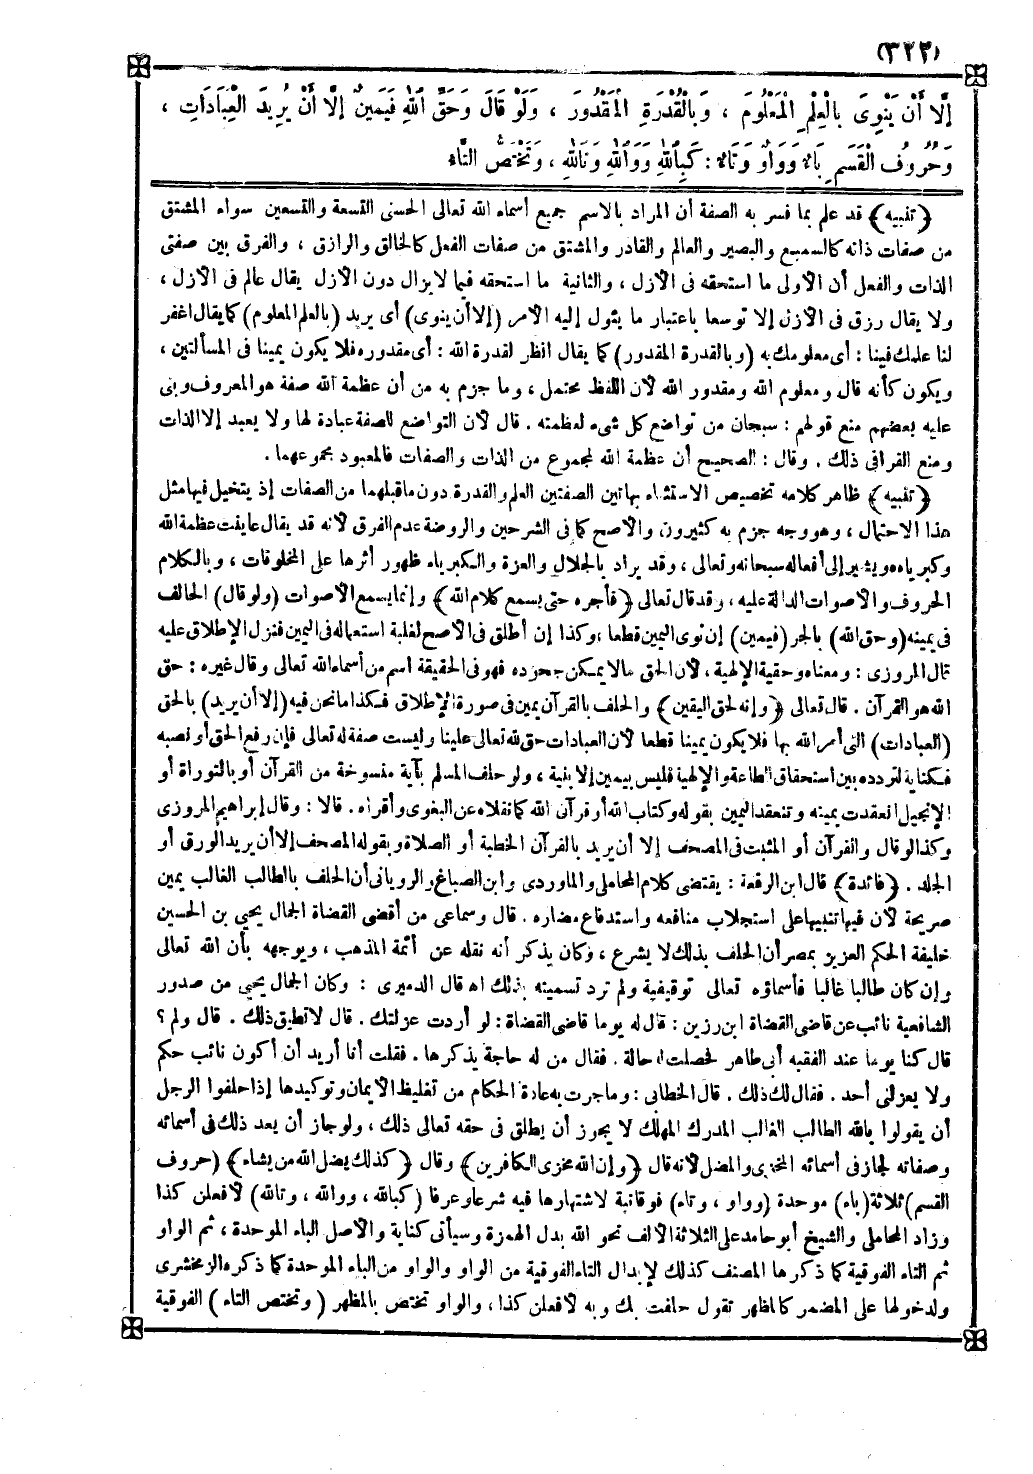 (٣٢٢)
إِلَّا أَنْ يَنْوِىَ بِالْعِلْمِ الْمَعْلُومَ ، وَبِالْقُدْرَةِ الْمَقْدُورَ ، وَلَوْ قَالَ وَحَقِّ اللهِ فَيَمِينٌ إِلَّا أَنْ يُرِيدَ الْعِبَادَاتِ ،
وَحُرُوفُ الْقَسَمِ بَاءٌ وَوَاوٌ وَتَاءٌ : كَبِاللهِ وَوَاللهِ وَتَاللهِ ، وَتَخْتَصُّ التَّاءُ
﴿تنبيه﴾ قد علم بما فسر به الصفة أن المراد بالاسم جميع أسماء الله تعالى الحسنى التسعة والتسعين سواء المشتق
من صفات ذاته كالسميع والبصير والعالم والقادر والمشتق من صفات الفعل كالخالق والرازق ، والفرق بين صفتى
الذات والفعل أن الأولى ما استحقه فى الأزل ، والثانية ما استحقه فيما لايزال دون الأزل يقال عالم فى الأزل ،
ولا يقال رزق فى الأزل إلا توسعا باعتبار ما يئول إليه الأمر (إلا أن ينوى) أى يريد (بالعلم المعلوم) كما يقال اغفر
لنا علمك فينا : أى معلومك به (وبالقدرة المقدور) كما يقال انظر لقدرة الله : أى مقدوره فلا يكون يمينا فى المسألتين ،
ويكون كأنه قال ومعلوم الله ومقدور الله لأن اللفظ محتمل ، وما جزم به من أن عظمة الله صفة هو المعروف وبنى
عليه بعضهم منع قولهم : سبحان من تواضع كل شىء لعظمته . قال لأن التواضع للصفة عبادة لها ولا يعبد إلا الذات
ومنع القرافى ذلك . وقال : الصحيح أن عظمة الله لمجموع من الذات والصفات فالمعبود مجموعهما .
﴿تنبيه﴾ ظاهر كلامه تخصيص الاستثناء بهاتين الصفتين العلم والقدرة دون ما قبلهما من الصفات إذ يتخيل فيها مثل
هذا الاحتمال ، وهو وجه جزم به كثيرون والأصح كما فى الشرحين والروضة عدم الفرق لأنه قد يقال عاينت عظمة الله
وكبرياءه ويشير إلى أفعاله سبحانه وتعالى ، وقد يراد بالجلال والعزة والكبرياء ظهور أثرها على المخلوقات ، وبالكلام
الحروف والأصوات الدالة عليه ، وقد قال تعالى ﴿فأجره حتى يسمع كلام الله﴾ وإنما يسمع الأصوات (ولو قال) الحالف
فى يمينه (وحق الله) بالجر (فيمين) إن نوى اليمين قطعا ، وكذا إن أطلق فى الأصح لغلبة استعماله فى اليمين فنزل الإطلاق عليه
قال المروزى : ومعناه وحقية الإلهية ، لأن الحق ما لا يمكن جحوده فهو فى الحقيقة اسم من أسماء الله تعالى وقال غيره : حق
الله هو القرآن . قال تعالى ﴿وإنه لحق اليقين﴾ والحلف بالقرآن يمين فى صورة الإطلاق فكذا ما نحن فيه (إلا أن يريد) بالحق
(العبادات) التى أمر الله بها فلا يكون يمينا قطعا لأن العبادات حق لله تعالى علينا وليست صفة له تعالى فإن رفع الحق أو نصبه
فكناية لتردده بين استحقاق الطاعة والإلهية فليس بيمين إلا بنية ، ولو حلف المسلم بآية منسوخة من القرآن أو بالتوراة أو
الإنجيل انعقدت يمينه وتنعقد اليمين بقوله وكتاب الله أو قرآن الله كما نقلاه عن البغوى وأقراه . قالا : وقال إبراهيم المروزى
وكذا لو قال والقرآن أو المثبت فى المصحف إلا أن يريد بالقرآن الخطبة أو الصلاة وبقوله المصحف إلا أن يريد الورق أو
الجلد . ﴿فائدة﴾ قال ابن الرفعة : يقتضى كلام المحاملى والماوردى وابن الصباغ والرويانى أن الحلف بالطالب الغالب يمين
صريحة لأن فيها تنبيها على استجلاب منافعه واستدفاع مضاره . قال وسماعى من أقضى القضاة الجمال يحيى بن الحسين
خليفة الحكم العزيز بمصر أن الحلف بذلك لا يشرع ، وكان يذكر أنه نقله عن أئمة المذهب ، ويوجهه بأن الله تعالى
وإن كان طالبا غالبا فأسماؤه تعالى توقيفية ولم ترد تسميته بذلك اه قال الدميرى : وكان الجمال يحيى من صدور
الشافعية نائب عن قاضى القضاة ابن رزين : قال له يوما قاضى القضاة : لو أردت عزلتك . قال لا تطيق ذلك . قال ولم ؟
قال كنا يوما عند الفقيه أبى طاهر فحصلت له حالة . فقال من له حاجة يذكرها . فقلت أنا أريد أن أكون نائب حكم
ولا يعزلنى أحد . فقال لك ذلك . قال الخطابى : وما جرت به عادة الحكام من تغليظ الأيمان وتوكيدها إذا حلفوا الرجل
أن يقولوا بالله الطالب الغالب المدرك المهلك لا يجوز أن يطلق فى حقه تعالى ذلك ، ولو جاز أن يعد ذلك فى أسمائه
وصفاته لجاز فى أسمائه المخزى والمضل لأنه قال ﴿وإن الله مخزى الكافرين﴾ وقال ﴿كذلك يضل الله من يشاء﴾ (حروف
القسم) ثلاثة (باء) موحدة (وواو ، وتاء) فوقانية لاشتهارها فيه شرعا وعرفا (كبالله ، ووالله ، وتالله) لأفعلن كذا
وزاد المحاملى والشيخ أبو حامد على الثلاثة الألف نحو الله بدل الهمزة وسيأتى كناية والأصل الباء الموحدة ، ثم الواو
ثم التاء الفوقية كما ذكرها المصنف كذلك لإبدال التاء الفوقية من الواو والواو من الباء الموحدة كما ذكره الزمخشرى
ولدخولها على المضمر كالمظهر تقول حلفت بك وبه لأفعلن كذا ، والواو تختص بالمظهر (وتختص التاء) الفوقية